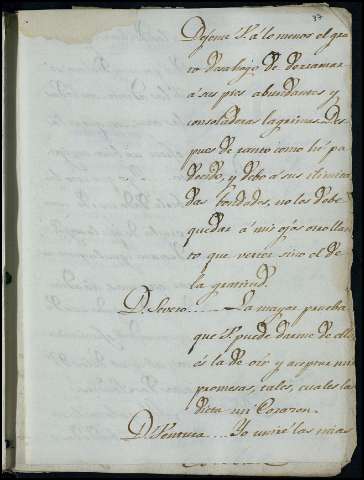 37
Dejeme V. a lo menos el gra
to desahogo de derramar
a sus pies abundantes y
consoladoras lagrimas. Des
pues de tanto como he pa
decido, y debo a sus ilimita
das bondades, no les debe
quedar a mis ojos otro llan
to que verter sino el de
la gratitud.
D. Severo...... La mayor prueba
que V. puede darme de ella
es la de oir y aceptar mis
promesas, tales, cuales las
dicta mi Corazon.
D.ª Ventura.... Yo uniré las mias